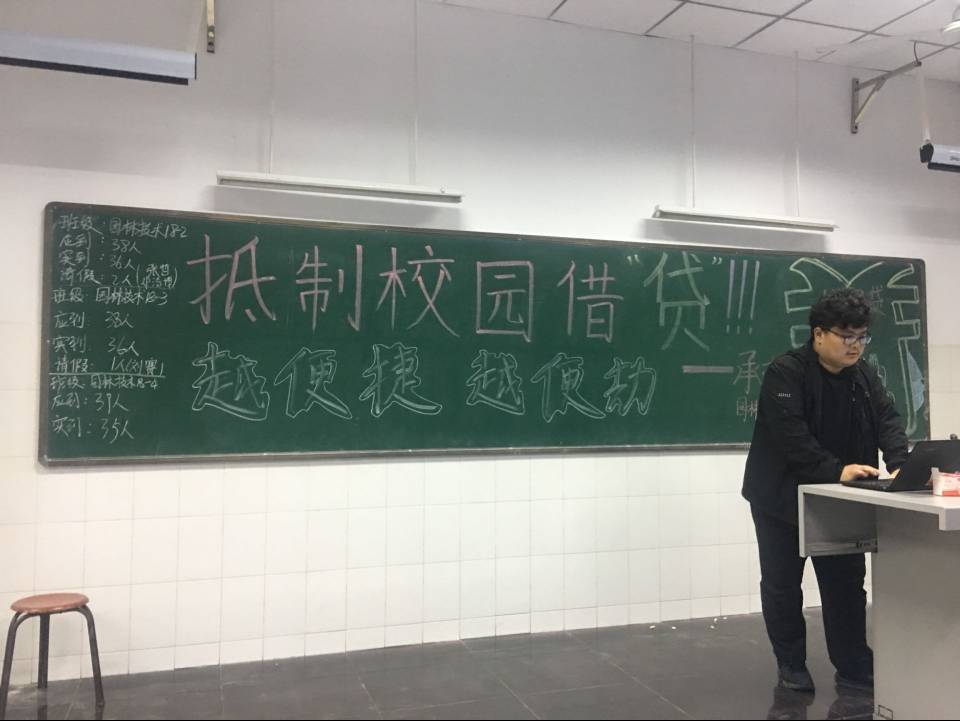 班级：园林技术18-2
应到：38人
实到：36人
请假：2人
班级：园林技术18-3
应到：38人
实到：36人
请假：1人
班级：园林技术18-4
应到：39人
实到：35人
抵制校园借“贷”!!!
越便捷 越便劫
——承
园林